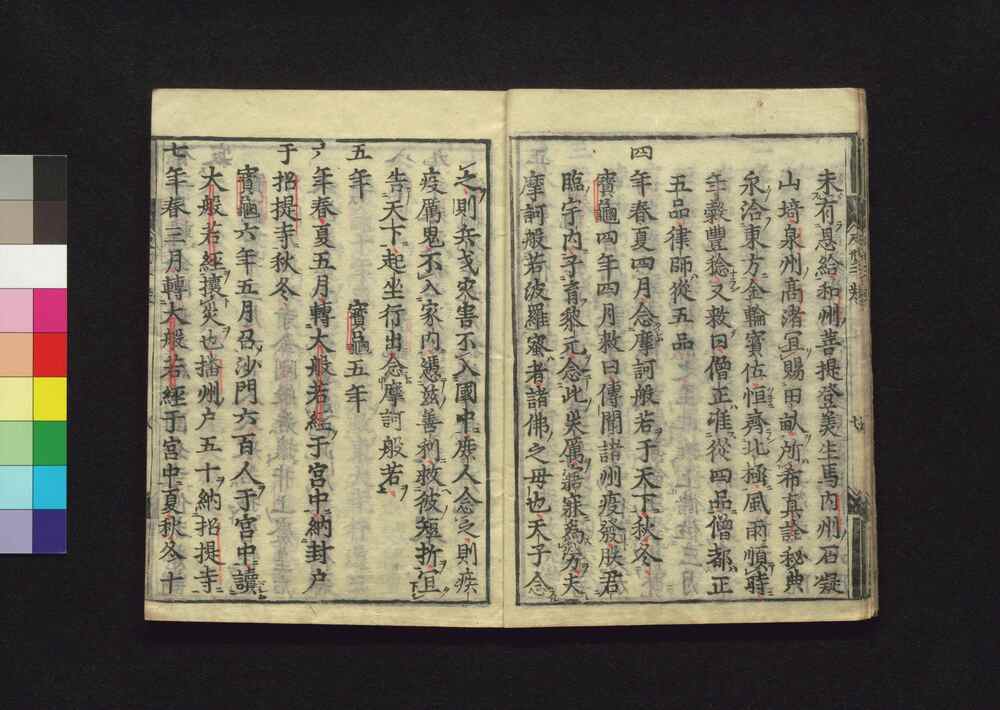 未有恩給和州菩提登美生馬内州石凝
山埼泉州高渚宜賜田畝所希真詮秘典
永洽東方金輪寳位恒齊北極風雨順時
年穀豊稔又敕曰僧正准從四品僧都正
五品律師從五品
四年春夏四月念摩訶般若于天下秋冬
寳龜四年四月敕曰傳聞諸州疫發朕君
臨宇内子育黎元念此灾厲寤寐爲労夫
摩訶般若波羅蜜者諸佛之母也天子念
之則兵戈灾害不入國中庶人念之則疾
疫厲鬼不入家内憑茲善利救彼短折宜
告天下起坐行出念摩訶般若
五年 寳龜五年
年春夏五月轉大般若經于宮中納封户
于招提寺秋冬
寳龜六年五月召沙門六百人于宮中讀
大般若經攘災也播州户五十納招提寺
七年春三月轉大般若經于宮中夏秋冬十